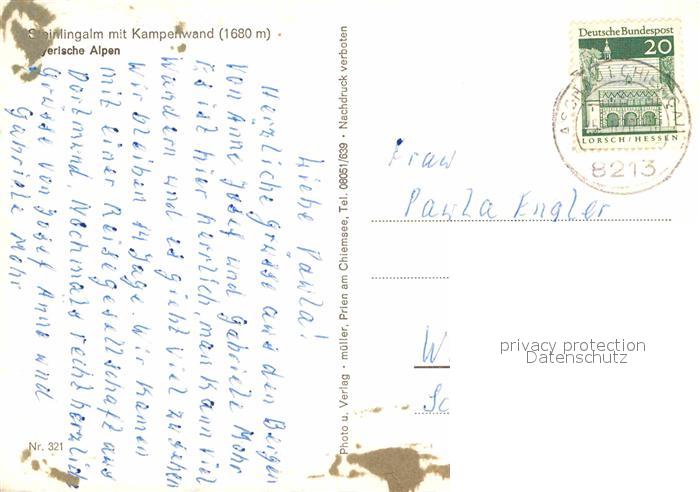 Steinlingalm mit Kampenwand (1680 m)
Bayerische Alpen
Liebe Paula!
Herzliche Grüsse aus den Bergen
von Anne Josef und Gabriele Mohr
Es ist hier herrlich, man kann viel
wandern und es gieht viel zu sehen
Wir bleiben 14 Tage. Wir kamen
mit einer Reisegesellschaft aus
Dortmund. Nochmals recht herzliche
Grüsse von Josef Anne und
Gabriele Mohr
Nr. 321
Photo u. Verlag · müller, Prien am Chiemsee, Tel. 08051/639 · Nachdruck verboten
Deutsche Bundespost
20
LORSCH/HESSEN
8213
Frau
Paula Engler
W
Sc
privacy protection
Datenschutz